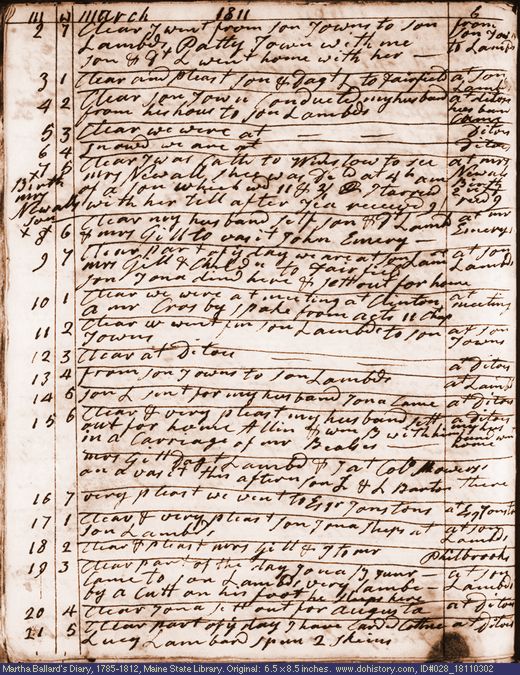 m w march 1811 6
2 7 Clear I went from son Towns to son from
Lambds Patty Town with me son Town
son & dt L went home with her — to Lambds
3 1 Clear and pleast son & dagt L to Fairfield at son
Lambd
4 2 Clear son Town Conducted my husband at diton
from his hous to son Lambds
Came
5 3 Clear we were at — — — Ditos
6 4 snowd we are at Ditos
x 7 5 Clear I was Calld to Winslow to see at mr
Birth mrs Newall shee was Dld at 4 h Newals
mrs of a son wheich wd 11 & I tarried Birth
Newalls with her till after Tea receivd 9/ recd 9/
son
x 8 6 Clear my husband self son & dt Lambd at mr
& mrs Gill to vasit John Emery — Emerys
9 7 Clear part of y day we are at son Lam at son
mrs Gill & Child to Fairfield Lambds
son Jona dind here & sett out for home
10 1 Clear we were at meeting at Clinton at
a mr Crosby spake from acts 11 Chap meeting
11 2 Clear we went from son Lambds to son at son
Towns Towns
12 3 Clear at Ditos — — at ditos
13 4 from son Towns to son Lambds at Lambds
14 5 son L sent for my husband Jona Came at ditos
15 6 Clear & very pleast my husband sett at ditos
out for home Allin & wm B with him my hus
in a Carriage of mr band went
mrs Gill Dagt Lambd & I at Colo
on a vasit this afternoon & L Barton there
16 7 very pleast we went to Esqr Jonstons at Esqr Jonstons
17 1 Clear & very pleast son Jona sleeps at at son
son Lambds Lambds
18 2 Clear & pleast mrs Gill & I to mr Philbrooks
19 3 Clear part of the day Jona B junr at son
Came to son Lambds very lambe Lambds
by a Cutt on his foot he sleeps here
20 4 Clear Jona sett out for augusta at ditos
21 5 Clear part of y day I have Cardd Cotton at ditos
Lucy Lambard spun 2 skeins
Martha Ballard's Diary, 1785-1812, Maine State Library. Original: 6.5 x 8.5 inches. www.dohistory.com, ID#028_18110302